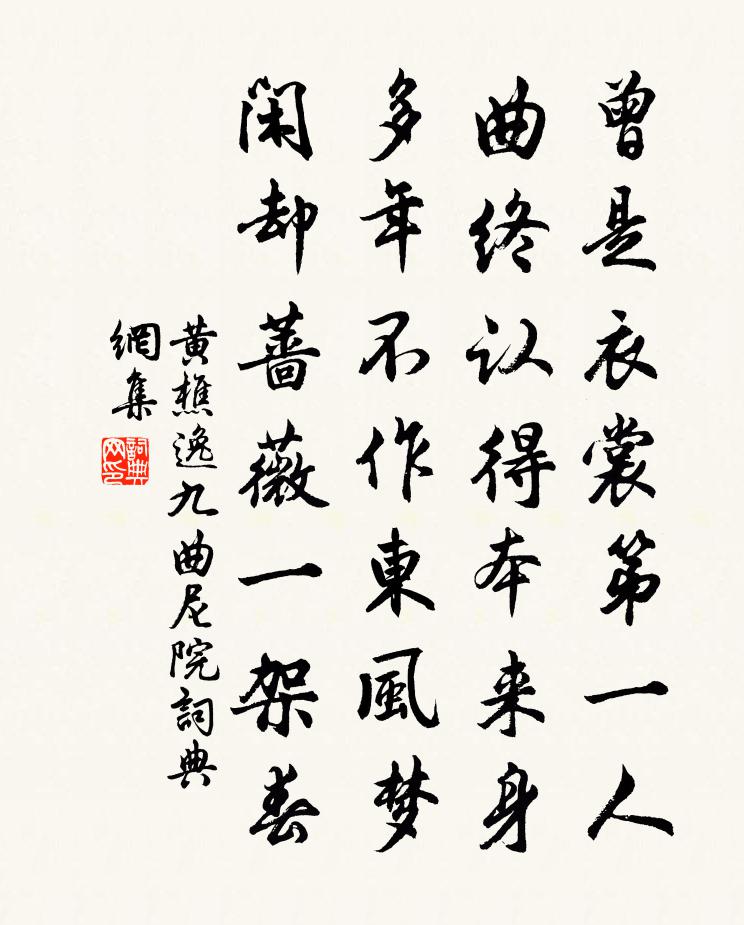 曾是衣裳第一人
曲终认得本来身
多年不作東風梦
閑却蔷薇一架春
黄樵逸九曲尼院詞典
網集
詞典
网印